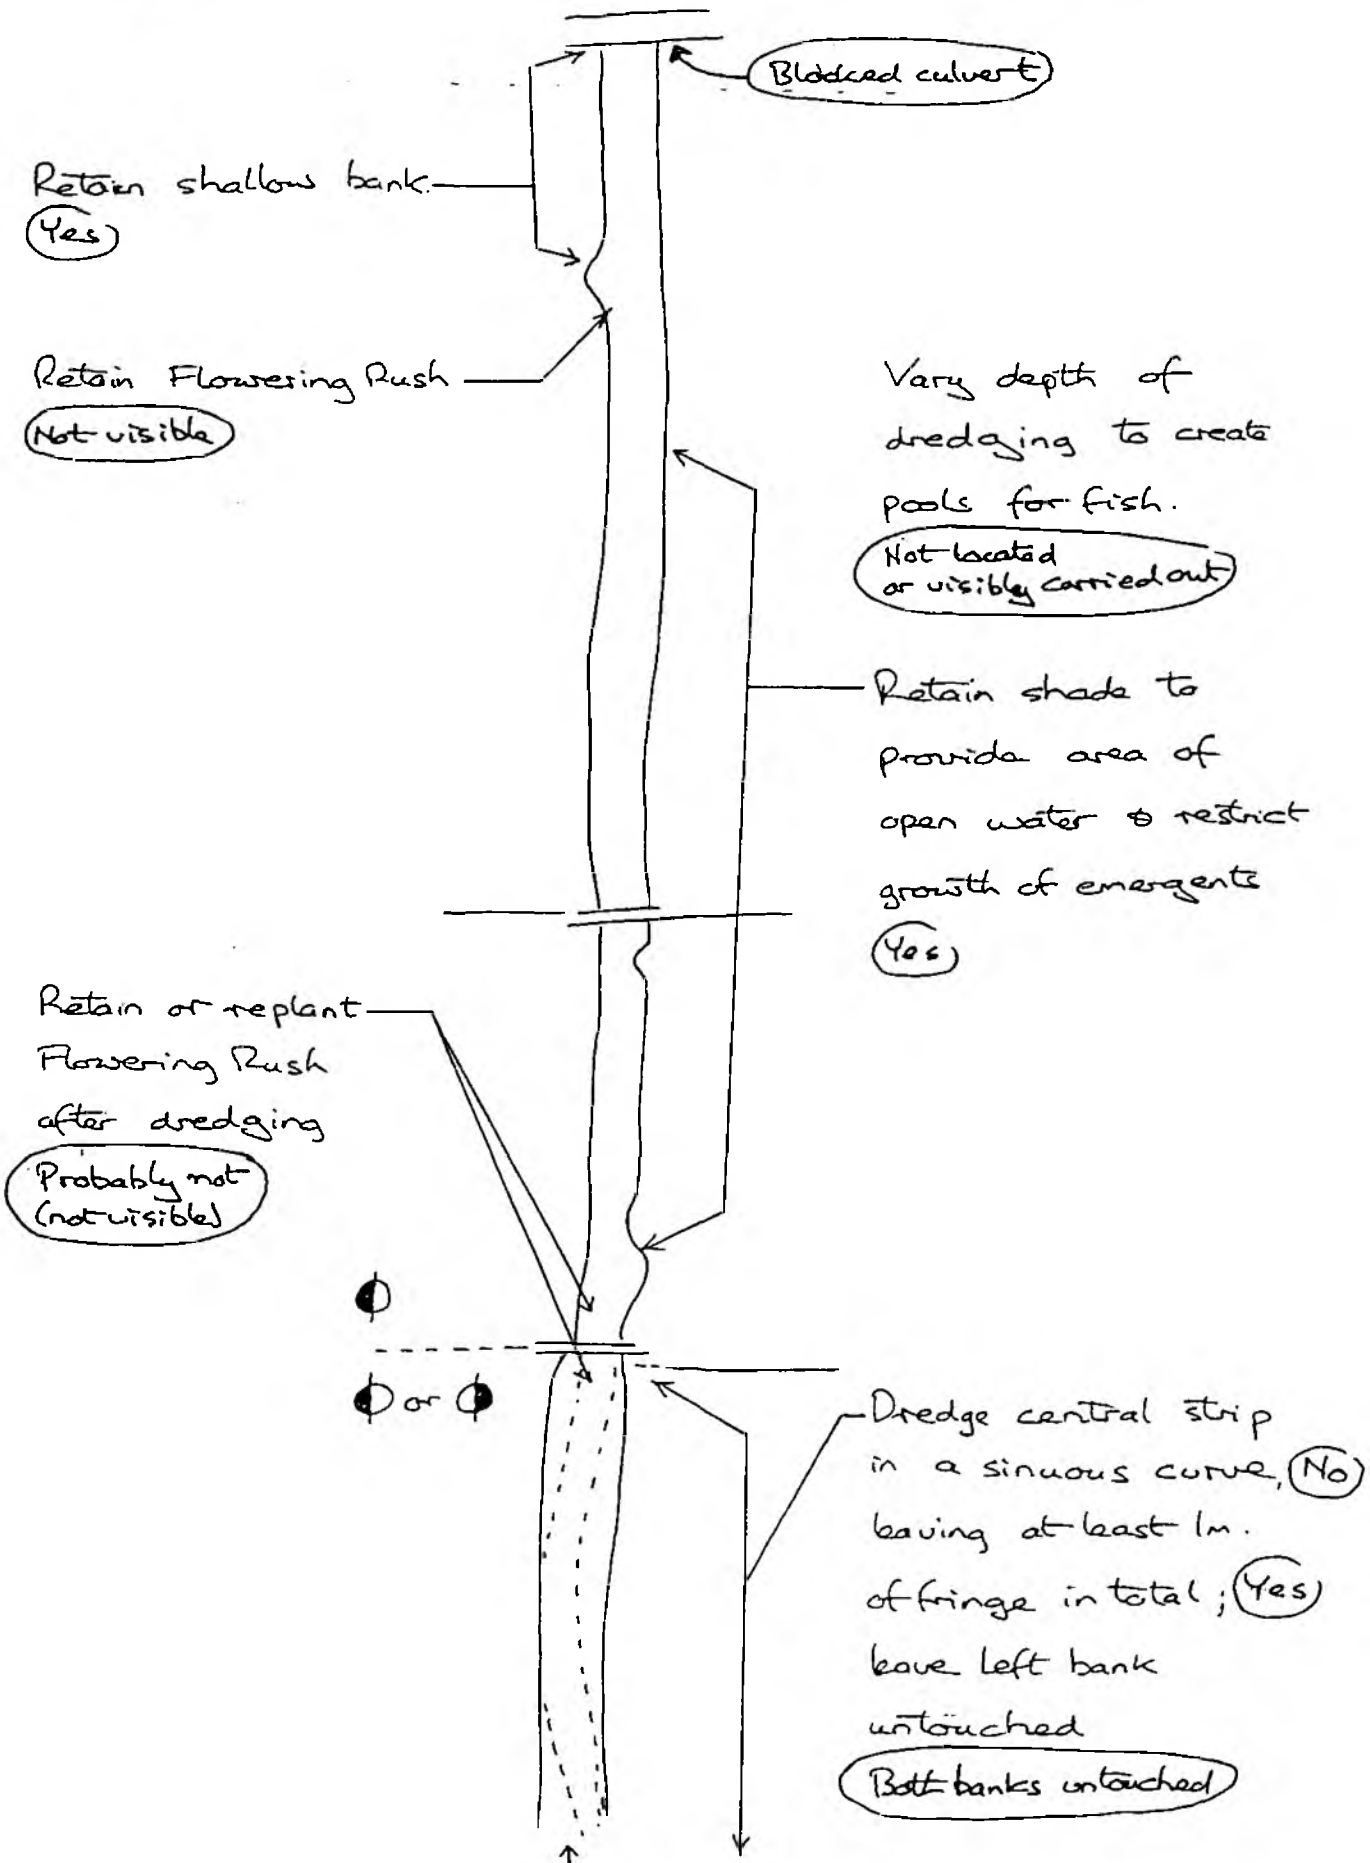 Blocked culvert
Retain shallow bank.
Yes
Retain Flowering Rush
Not visible
Vary depth of
dredging to create
pools for fish.
Not located
or visibly carried out
Retain shade to
provide area of
open water & restrict
growth of emergents
Yes
Retain or replant
Flowering Rush
after dredging
Probably not
(not visible)
or
Dredge central strip
in a sinuous curve, No
leaving at least 1m.
of fringe in total; Yes
leave left bank
untouched
Both banks untouched